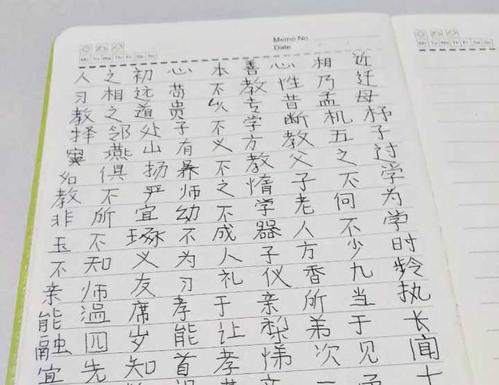 人之初心本善心相近
习相远苟不教性乃迁
教之道贵以专昔孟母
择邻处子不学断机杼
窦燕山有义方教五子
名俱扬养不教父之过
教不严师之惰子不学
非所宜幼不学老何为
玉不琢不成器人不学
不知义为人子方少时
亲师友习礼仪香九龄
能温席孝于亲所当执
融四岁能让梨弟于长
宜先知首孝悌次见闻
十
Memo No.
Date